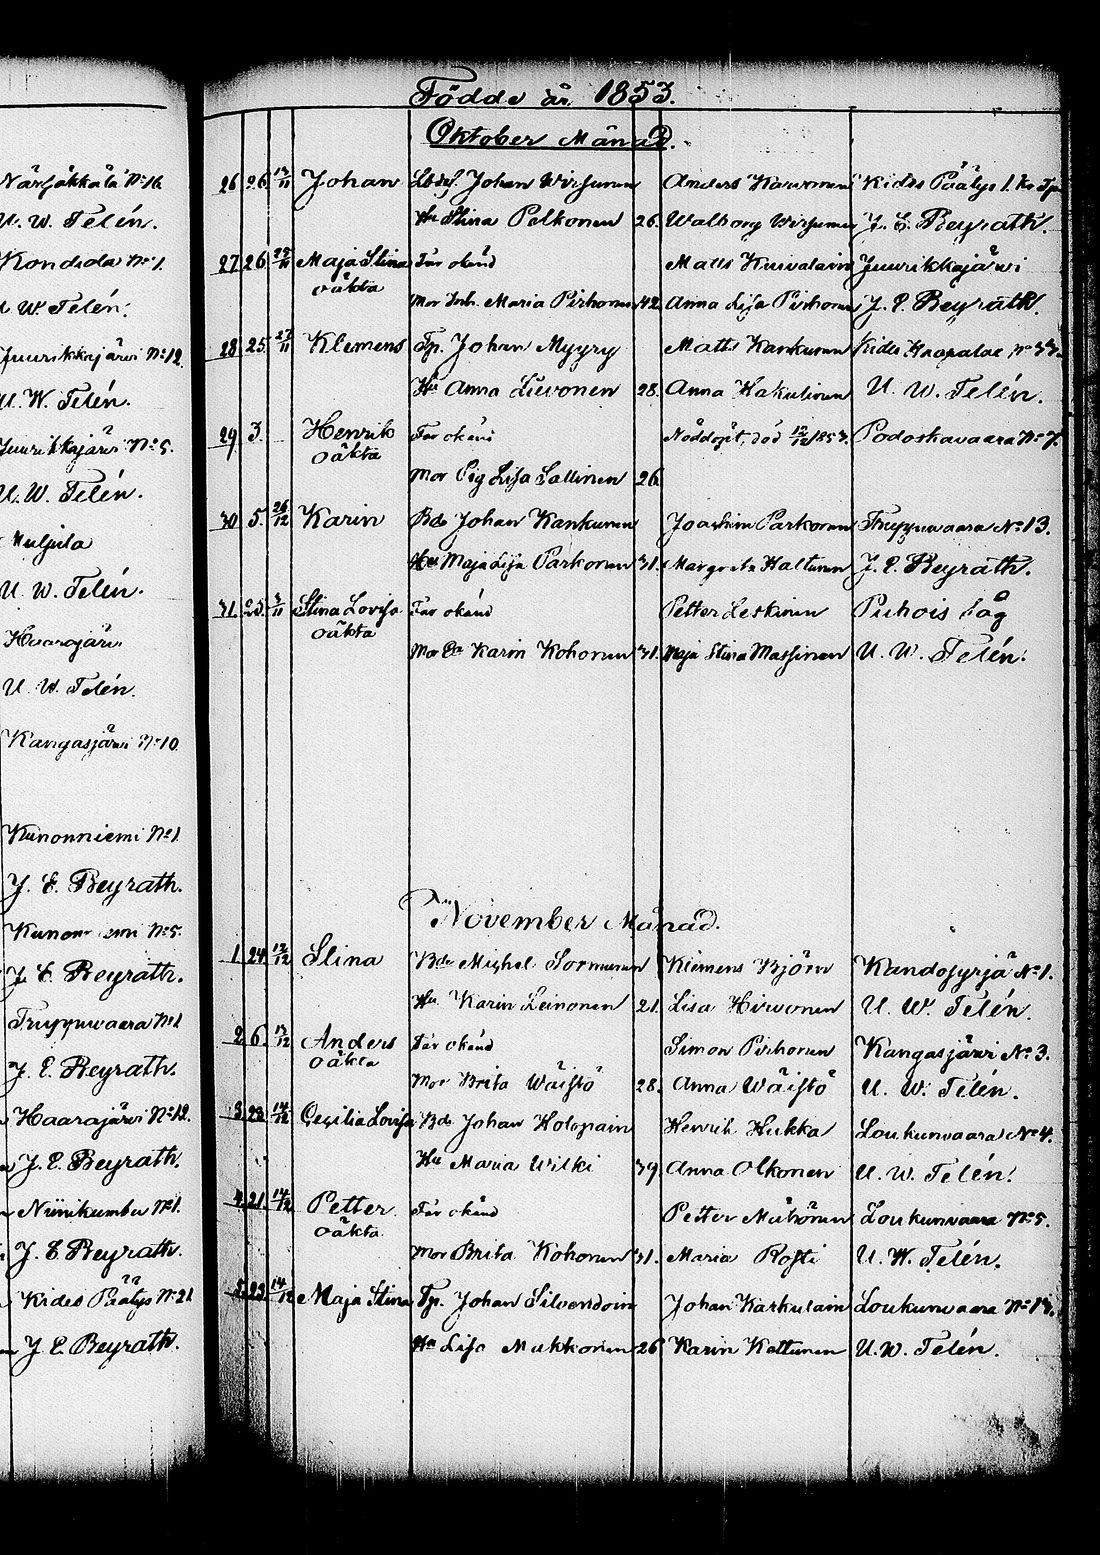 Närsäkkälä No 16
U. W. Telén.
Kondola No 1.
U. W. Telén.
Juurikkajärwi No 12.
U. W. Telén.
Juurikkajärwi No 5.
U. W. Telén.
U. W. Telén.
Haarajärwi
U. W. Telén.
Kangasjärwi No 10.
Kunonniemi No 1.
J. E. Beyrath.
No 5.
J. E. Beyrath.
J. E. Beyrath.
Haarajärwi No 12.
J. E. Beyrath.
Niinikumbu No 1.
J. E. Beyrath.
Kides Päätys No 21
J. E. Beyrath.
Födde år 1853.
Oktober Månad.
26 26 13/11 Johan Johan Wirsunen Anders Karwonen Kides Päätys 1.
Hu Stina Palkonen 26. Walborg Wirsunen J. E. Beyrath.
27 26 Maja Stina Far okänd Matts Kuivalain Juurikkajärwi
oäkta
Mor Inh. Maria Pirhonen 42. Anna Lisa Pirhonen J. E. Beyrath.
28 25. 27/11 Klemens Tp. Johan Myyry Matts Kankunen Kides
Hu Anna Lievonen 28. Anna Hakulinen U. W. Telén.
29 3. Henrik Far okänd Nöddöpt, död 12/12 1853. Podoskavaara No 7.
oäkta
Mor Pig Lisa Sallinen 26.
30 5. 26/12 Karin Bd Johan Kankunen Joachim Parkonen No 13.
Hu Maja Lisa Parkonen 31. Margreta Haltunen J. E. Beyrath.
31. 25. Stina Lovisa Far okänd Petter Leskinen Puhois
oäkta
Mor Karin Kohonen 31. Maja Stina Massinen U. W. Telén.
November Månad.
1 24 12/12 Stina Bd Michel Sormunen Klemens Björn No 1.
Hu Karin Leinonen 21. Lisa Hirwonen U. W. Telén.
2 6. 13/12 Anders Far okänd Simon Pirhonen Kangasjärwi No 3.
oäkta
Mor Brita Wäistö 28. Anna Wäistö U. W. Telén.
3. 23. 14/12 Cecilia Lovisa Bd Johan Holopain Henrik Hukka Loukunvaara No 4.
Hu Maria Wilki 39. Anna Olkonen U. W. Telén.
4. 21. 14/12 Petter Far okänd Petter Loukunvaara No 5.
oäkta
Mor Brita Kohonen 31. Maria Rosti U. W. Telén.
5. 23. 14/12 Maja Stina Tp. Johan Silvendoin Johan Karkulain Loukunvaara No 13.
Hu Lisa Mukkonen 26 Karin Kettunen U. W. Telén.